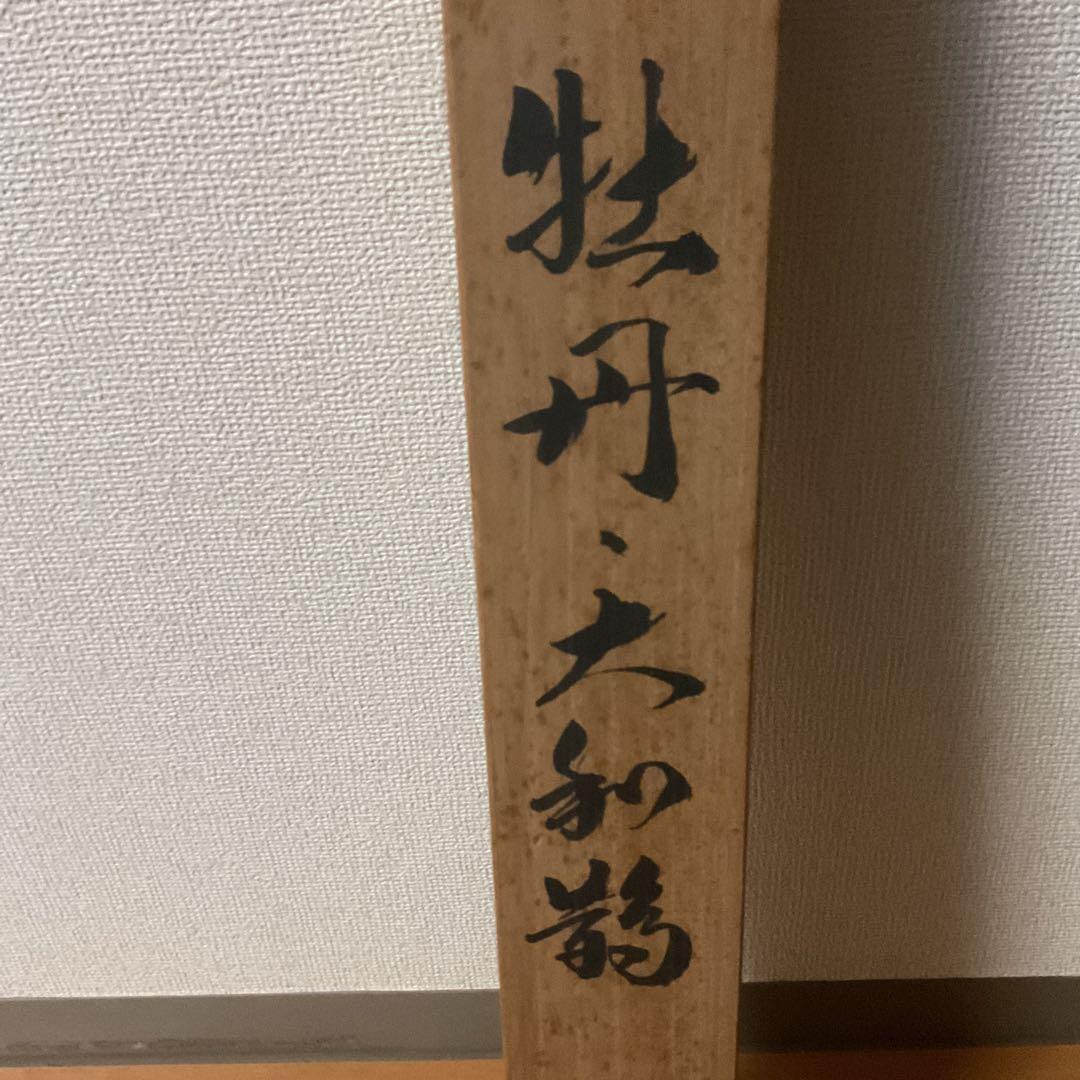 牡丹、大和鵲